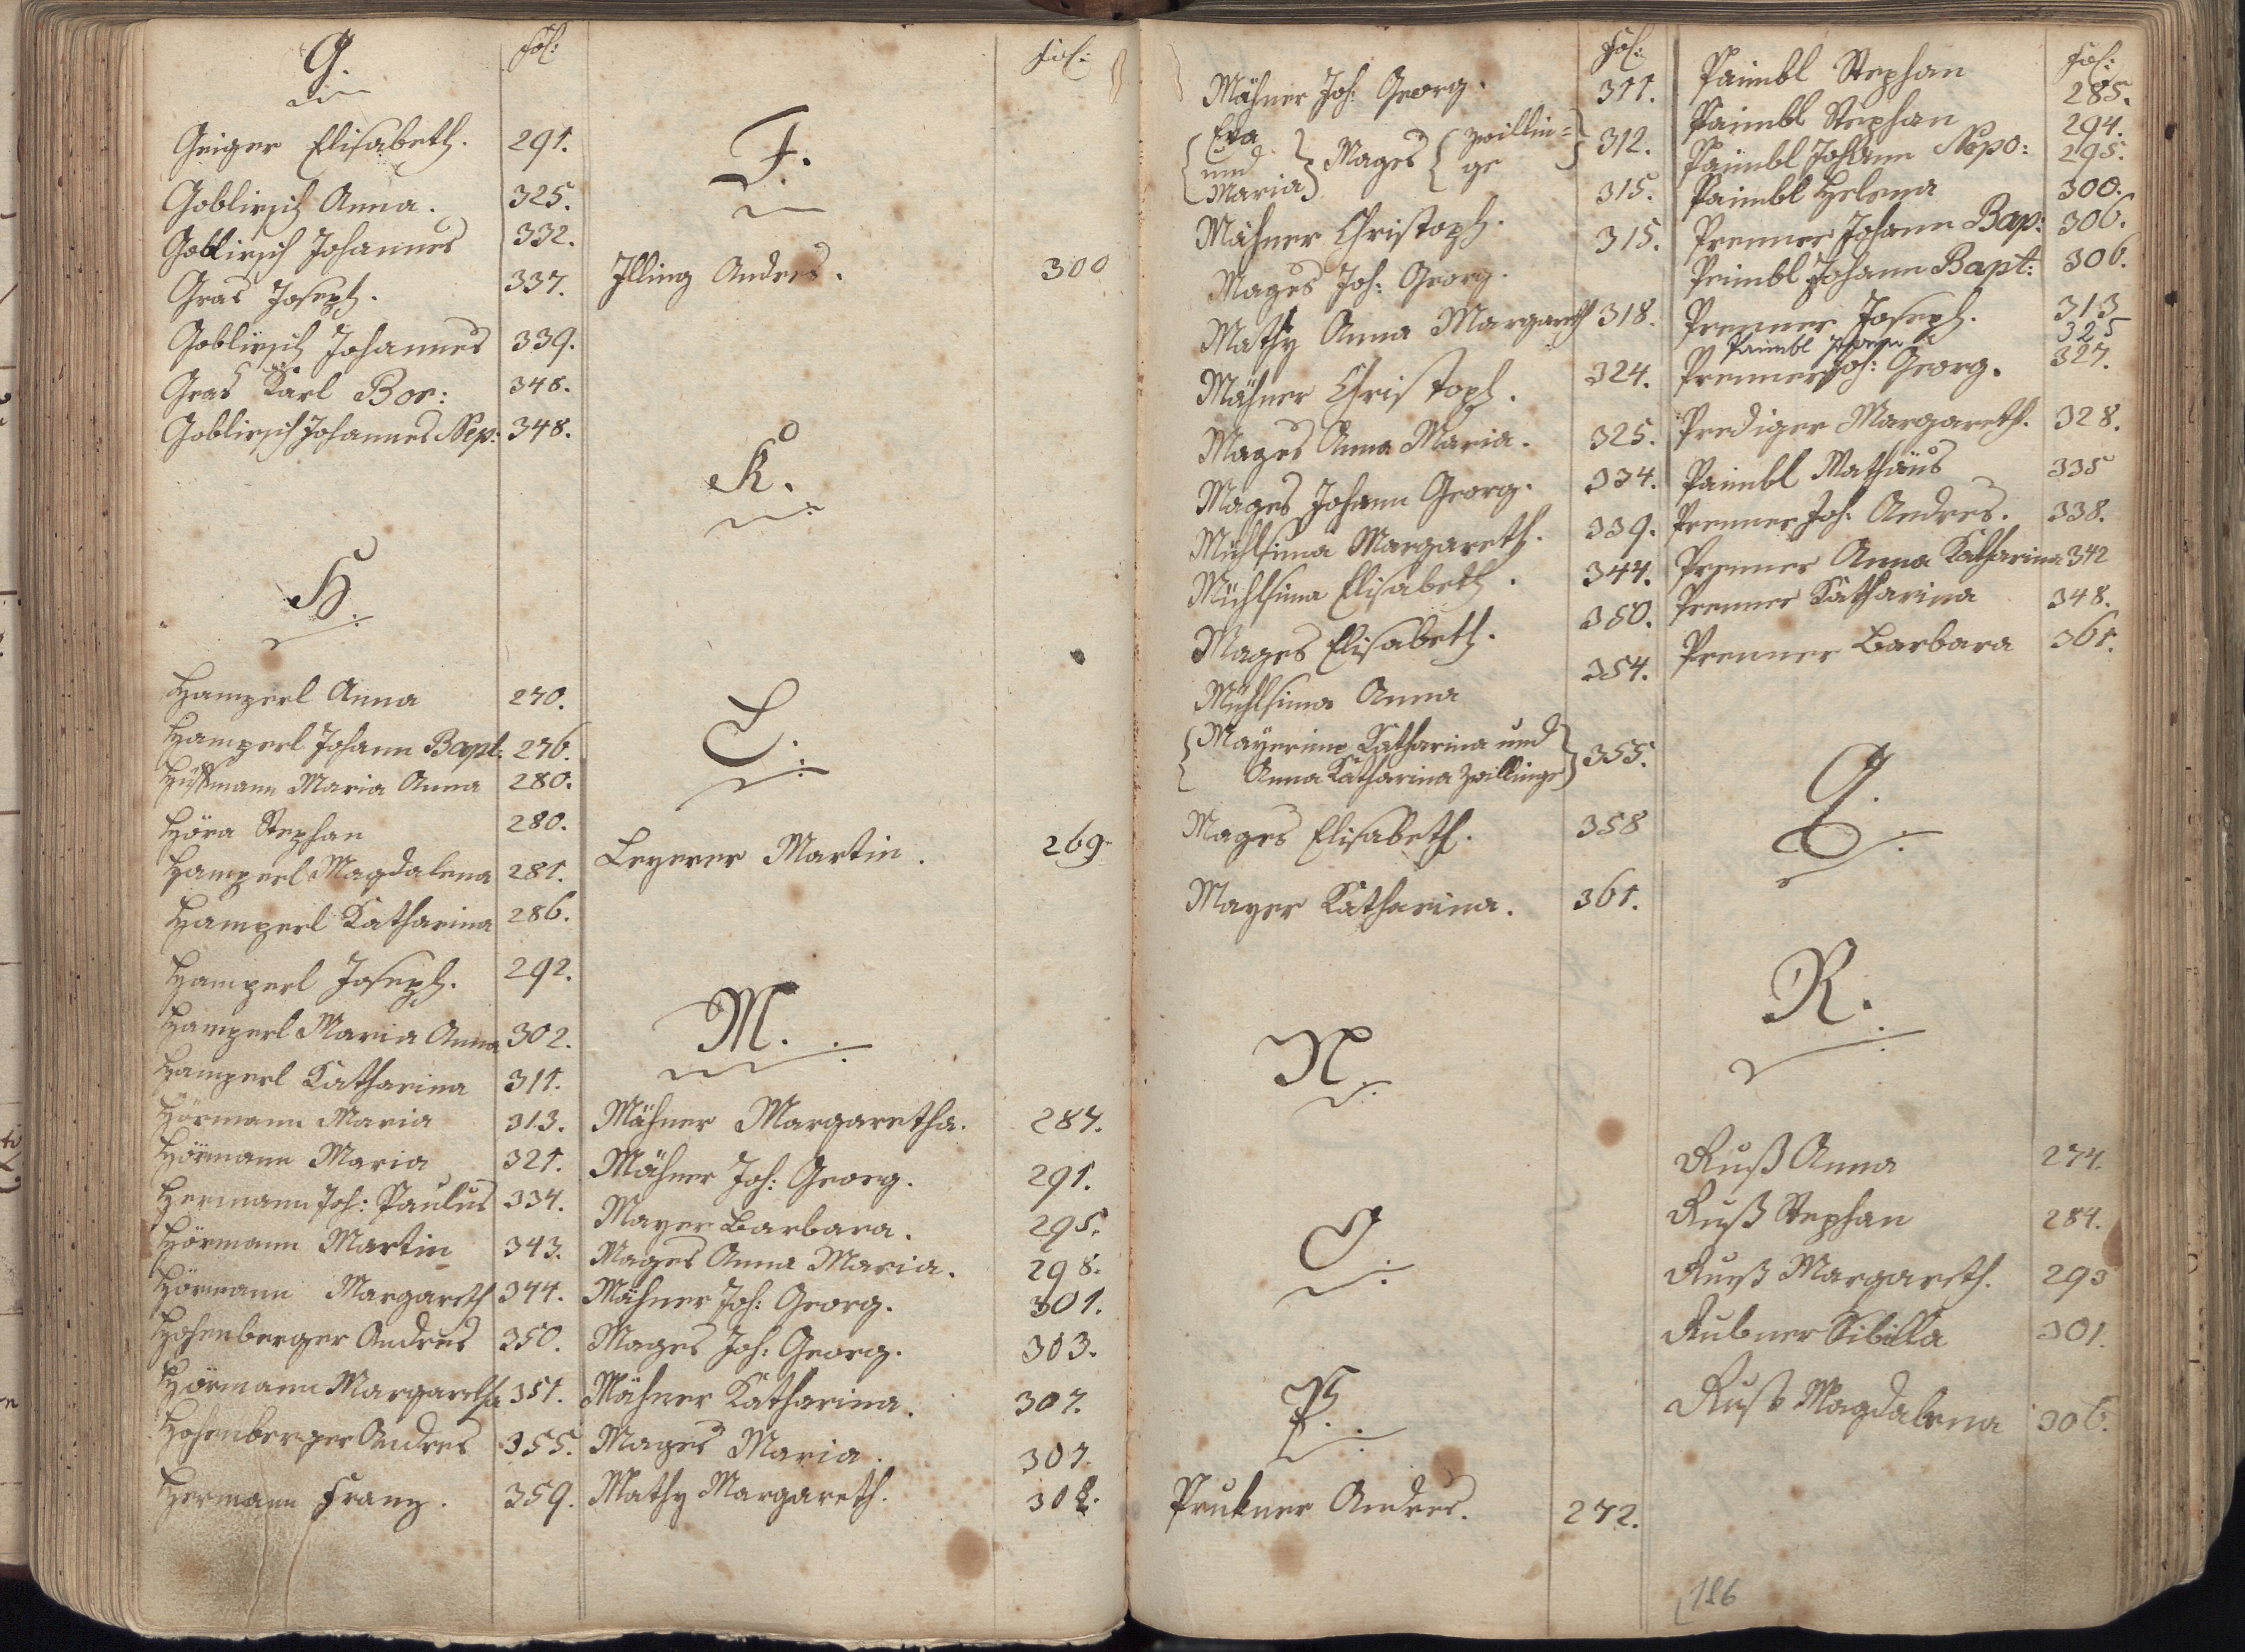 G.
fol:
Geiger Elisabeth. 291.
Goblirsch Anna. 325.
Goblirsch Johannes 332.
Gras Joseph. 337.
Goblirsch Johannes 339.
Gras Karl Bor: 348.
Goblirsch Johannes Nep: 348.
H.
Hamperl Anna 270.
Hamperl Johann Bapt: 276.
Maria Anna 280.
Höra Stephan 280.
Hamperl Magdalena 281.
Hamperl Katharina 286.
Hamperl Joseph. 292.
Hamperl Maria Anna 302.
Hamperl Katharina 311.
Hörmann Maria 313.
Hörmann Maria 321.
Hermann Joh: Paulus 334.
Hörmann Martin 343.
Hörmann Margareth 344.
Hohenberger Andres 350.
Hörmann Margaretha 351.
Hohenberger Andres 355.
Hermann Franz. 359.
fol:
J.
Illing Andres. 300
K.
L.
Leyerer Martin. 269.
M.
Mähner Margaretha. 287.
Mähner Joh: Georg. 291.
Mayer Barbara. 295.
Mages Anna Maria. 298.
Mähner Joh: Georg. 301.
Mages Joh: Georg. 303.
Mähner Katharina. 307.
Mages Maria. 307.
Mathy Margareth.
fol:
Mähner Joh: Georg. 311.
Eva
und
Maria
Mages
Zwillin=
ge
312.
315.
Mähner Christoph. 315.
Mages Joh: Georg.
Mathy Anna Margareth 318.
Mähner Christoph. 324.
Mages Anna Maria. 325.
Mages Johann Georg. 334.
Mühlsima Margareth. 339.
Mühlsima Elisabeth. 344.
Mages Elisabeth. 350.
Mühlsima Anna 354.
Mayerime Katharina und
Anna Katharina Zwillinge
355.
Mages Elisabeth. 358
Mayer Katharina. 361.
N.
O.
P.
Prukner Andres. 272.
fol:
Paimbl Stephan 285.
Paimbl Stephan 294.
Paimbl Johann Nepo: 295.
Paimbl Helena 300.
Prenner Johann Bap: 306.
Peimbl Johann Bapt: 306.
Prenner Joseph. 313
Paimbl 325
Prenner Joh: Georg. 327.
Prediger Margareth. 328.
Paimbl Mathäus 335
Prenner Joh: Andres. 338.
Prenner Anna Katharina 342
Prenner Katharina 348.
Prenner Barbara 361.
Q.
R.
Ruß Anna 274.
Ruß Stephan 284.
Ruß Margareth. 293
Rubner Sibilla 301.
Ruß Magdalena 306.
186